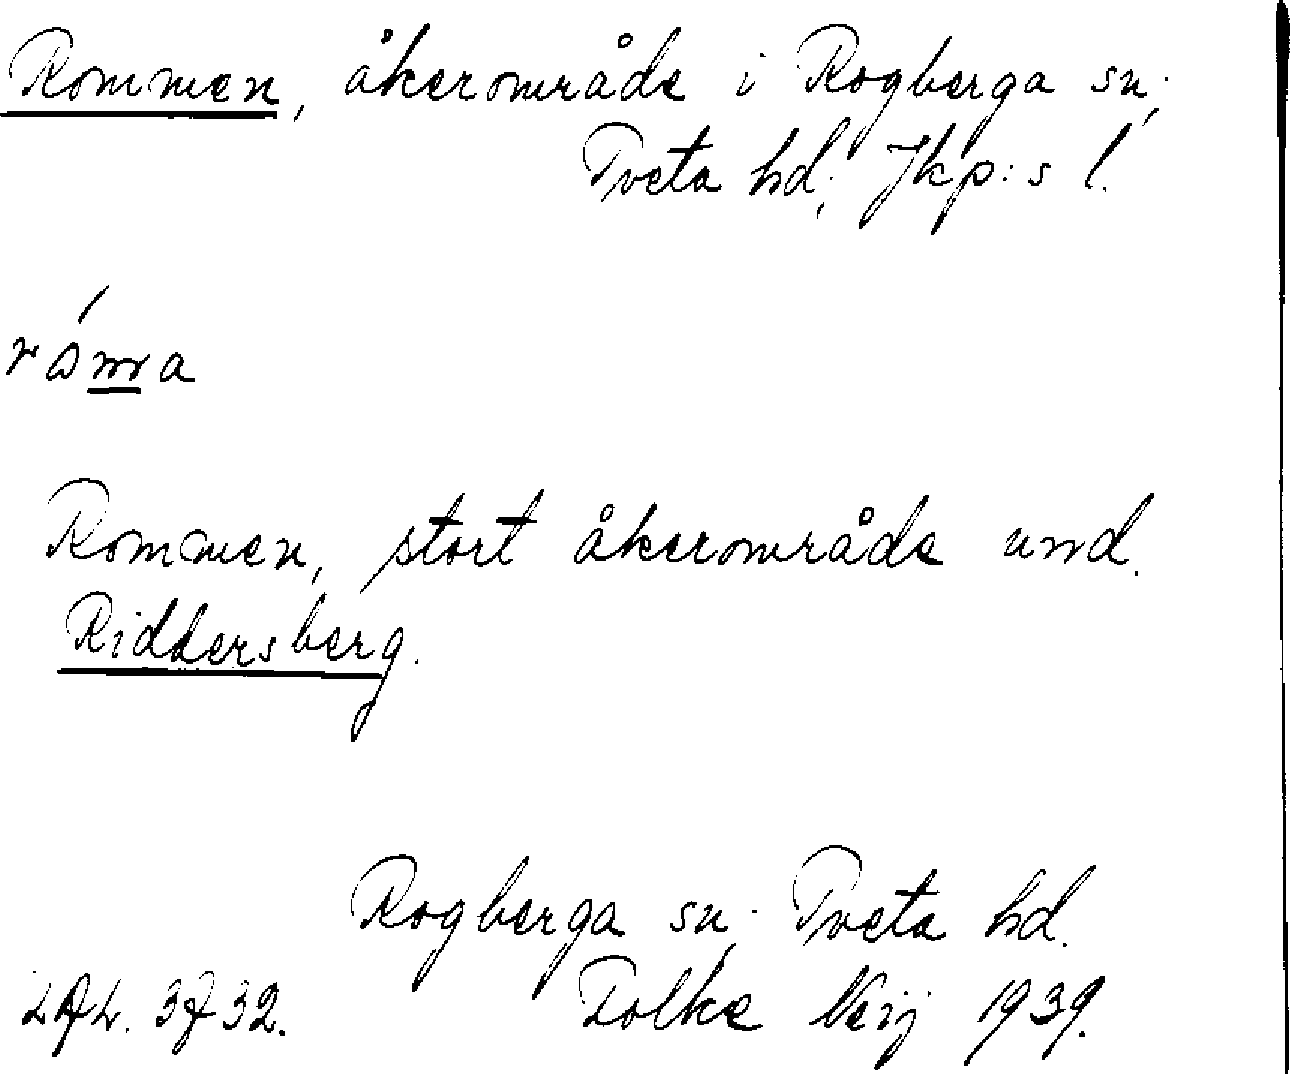 Rommen, åkerområde i Rogberga sn;
Tveta hd; Jkp:s l.
róma
Rommen, stort åkerområde und.
Riddersberg.
Rogberga sn; Tveta hd.
3732. Folke Neij 1939.